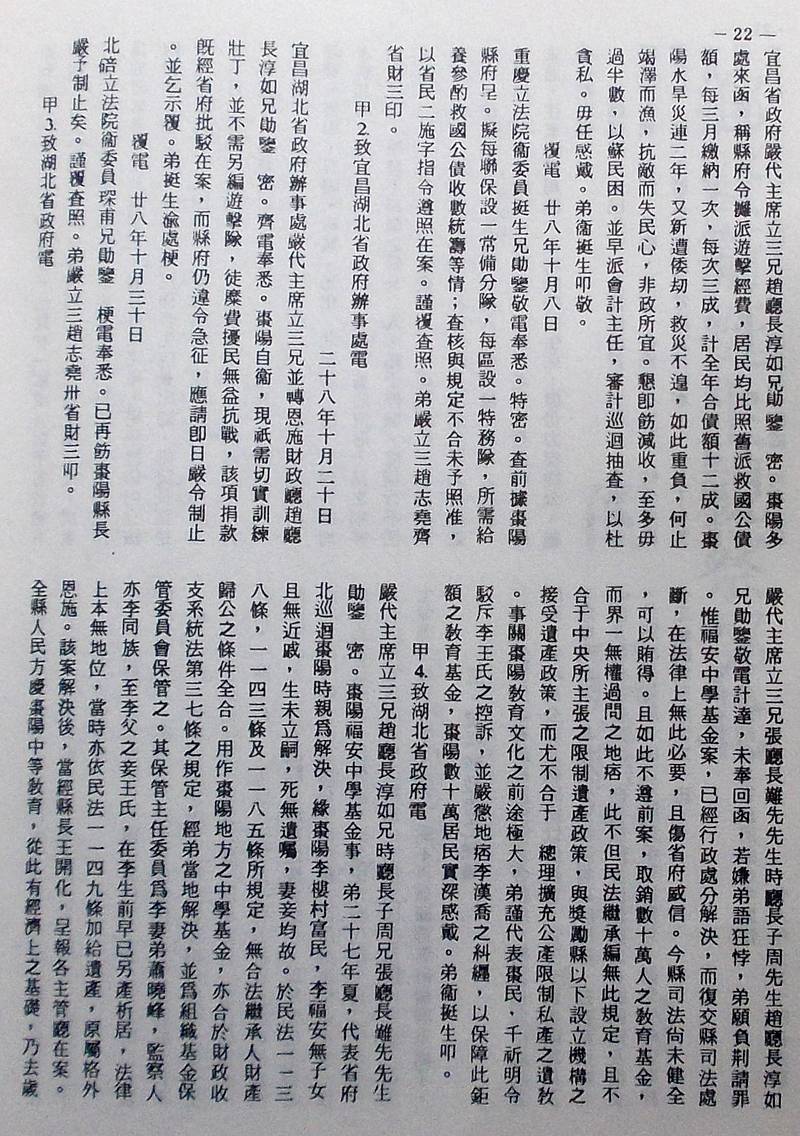 — 22 —
宜昌省政府嚴代主席立三兄趙廳長淳如兄勛鑒　密。棗陽多
處來函，稱縣府令攤派遊擊經費，居民均比照舊派救國公債
額，每三月繳納一次，每次三成，計全年合債額十二成。棗
陽水旱災連二年，又新遭倭刧，救災不遑，如此重負，何止
竭澤而漁，抗敵而失民心，非政所宜。懇即飭減收，至多毋
過半數，以蘇民困。並早派會計主任，審計巡迴抽查，以杜
貪私。毋任感戴。弟衞挺生叩敬。
覆電　廿八年十月八日
重慶立法院衞委員挺生兄勛鑒敬電奉悉。特密。查前據棗陽
縣府呈。擬每聯保設一常備分隊，每區設一特務隊，所需給
養參酌救國公債收數統籌等情；查核與規定不合未予照准，
以省民二施字指令遵照在案。謹覆查照。弟嚴立三趙志堯齊
省財三印。
甲2.致宜昌湖北省政府辦事處電
二十八年十月二十日
宜昌湖北省政府辦事處嚴代主席立三兄並轉恩施財政廳趙廳
長淳如兄勛鑒　密。齊電奉悉。棗陽自衞，現祇需切實訓練
壯丁，並不需另編遊擊隊，徒糜費擾民無益抗戰，該項捐款
旣經省府批駁在案，而縣府仍違令急征，應請卽日嚴令制止
。並乞示覆。弟挺生渝處梗。
覆電　廿八年十月三十日
北碚立法院衞委員琛甫兄勛鑒　梗電奉悉。已再飭棗陽縣長
嚴予制止矣。謹覆查照。弟嚴立三趙志堯卅省財三叩。
甲3.致湖北省政府電
嚴代主席立三兄張廳長難先先生時廳長子周先生趙廳長淳如
兄勛鑒敬電計達，未奉回函，若嫌弟語狂悖，弟願負荆請罪
。惟福安中學基金案，已經行政處分解決，而復交縣司法處
斷，在法律上無此必要，且傷省府威信。今縣司法尙未健全
，可以賄得。且如此不遵前案，取銷數十萬人之敎育基金，
而界一無權過問之地痞，此不但民法繼承編無此規定，且不
合于中央所主張之限制遺產政策，與獎勵縣以下設立機構之
接受遺產政策，而尤不合于　總理擴充公產限制私產之遺敎
。事關棗陽敎育文化之前途極大，弟謹代表棗民，千祈明令
駁斥李王氏之控訴，並嚴懲地痞李漢喬之糾纒，以保障此鉅
額之敎育基金，棗陽數十萬居民實深感戴。弟衞挺生叩。
甲4.致湖北省政府電
嚴代主席立三兄趙廳長淳如兄時廳長子周兄張廳長難先先生
勛鑒　密。棗陽福安中學基金事，弟二十七年夏，代表省府
北巡迴棗陽時親爲解決，緣棗陽李樓村富民，李福安無子女
且無近戚，生未立嗣，死無遺囑，妻妾均故。於民法一一三
八條，一一四三條及一一八五條所規定，無合法繼承人財產
歸公之條件全合。用作棗陽地方之中學基金，亦合於財政收
支系統法第三七條之規定，經弟當地解決，並爲組織基金保
管委員會保管之。其保管主任委員爲李妻弟蕭曉峰，監察人
亦李同族，至李父之妾王氏，在李生前早已另產析居，法律
上本無地位，當時亦依民法一一四九條加給遺產，原屬格外
恩施。該案解決後，當經縣長王開化，呈報各主管廳在案。
全縣人民方慶棗陽中等敎育，從此有經濟上之基礎，乃去歲